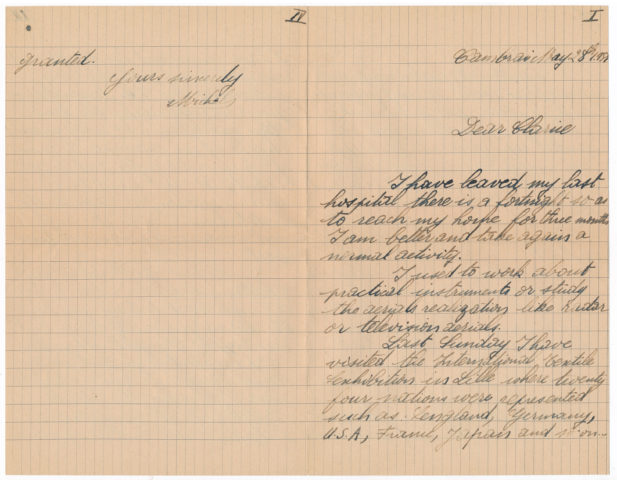 IV
granted.
Yours sincerely
Michel
I
Cambrai May 28th
Dear Claric
I have leaved my last
hospital there is a fortnight so as
to reach my home for three months
I am better and take again a
normal activity.
I used to work about
practical instruments or study
the aerials realization like radar
or television aerials.
Last Sunday I have
visited the International Textile
Exhibition in Lille where twenty
four nations were represented
such as England, Germany,
U.S.A, France, Japan and so on...